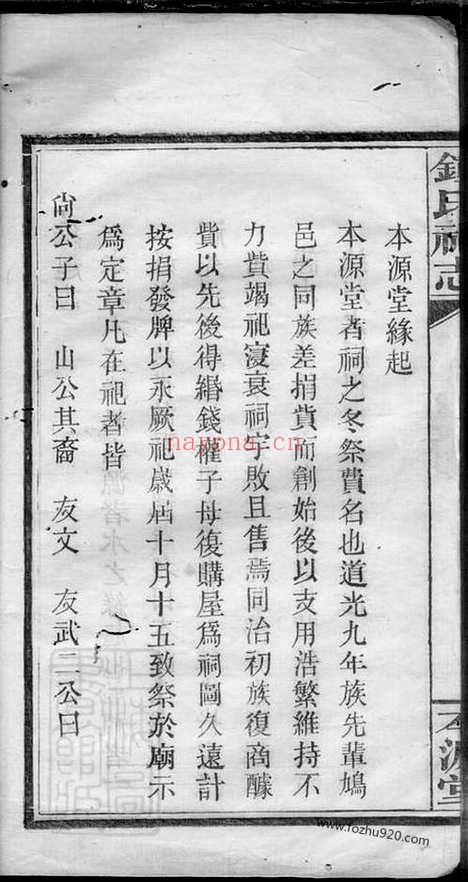 鍾氏祠志
本源堂緣起
本源堂者祠之冬祭費名也道光九年族先輩鳩
邑之同族差捐貲而創始後以支用浩繁維持不
力貲竭祀寖衰祠宇敗且售焉同治初族復商醵
貲以先後得緡錢權子母復購屋爲祠圖久遠計
按捐發牌以永厥祀歲屆十月十五致祭於廟示
爲定章凡在祀者皆
尙公子曰 山公其裔 友文 友武二公曰
本源堂
nayona.cn
www.fozhu920.com